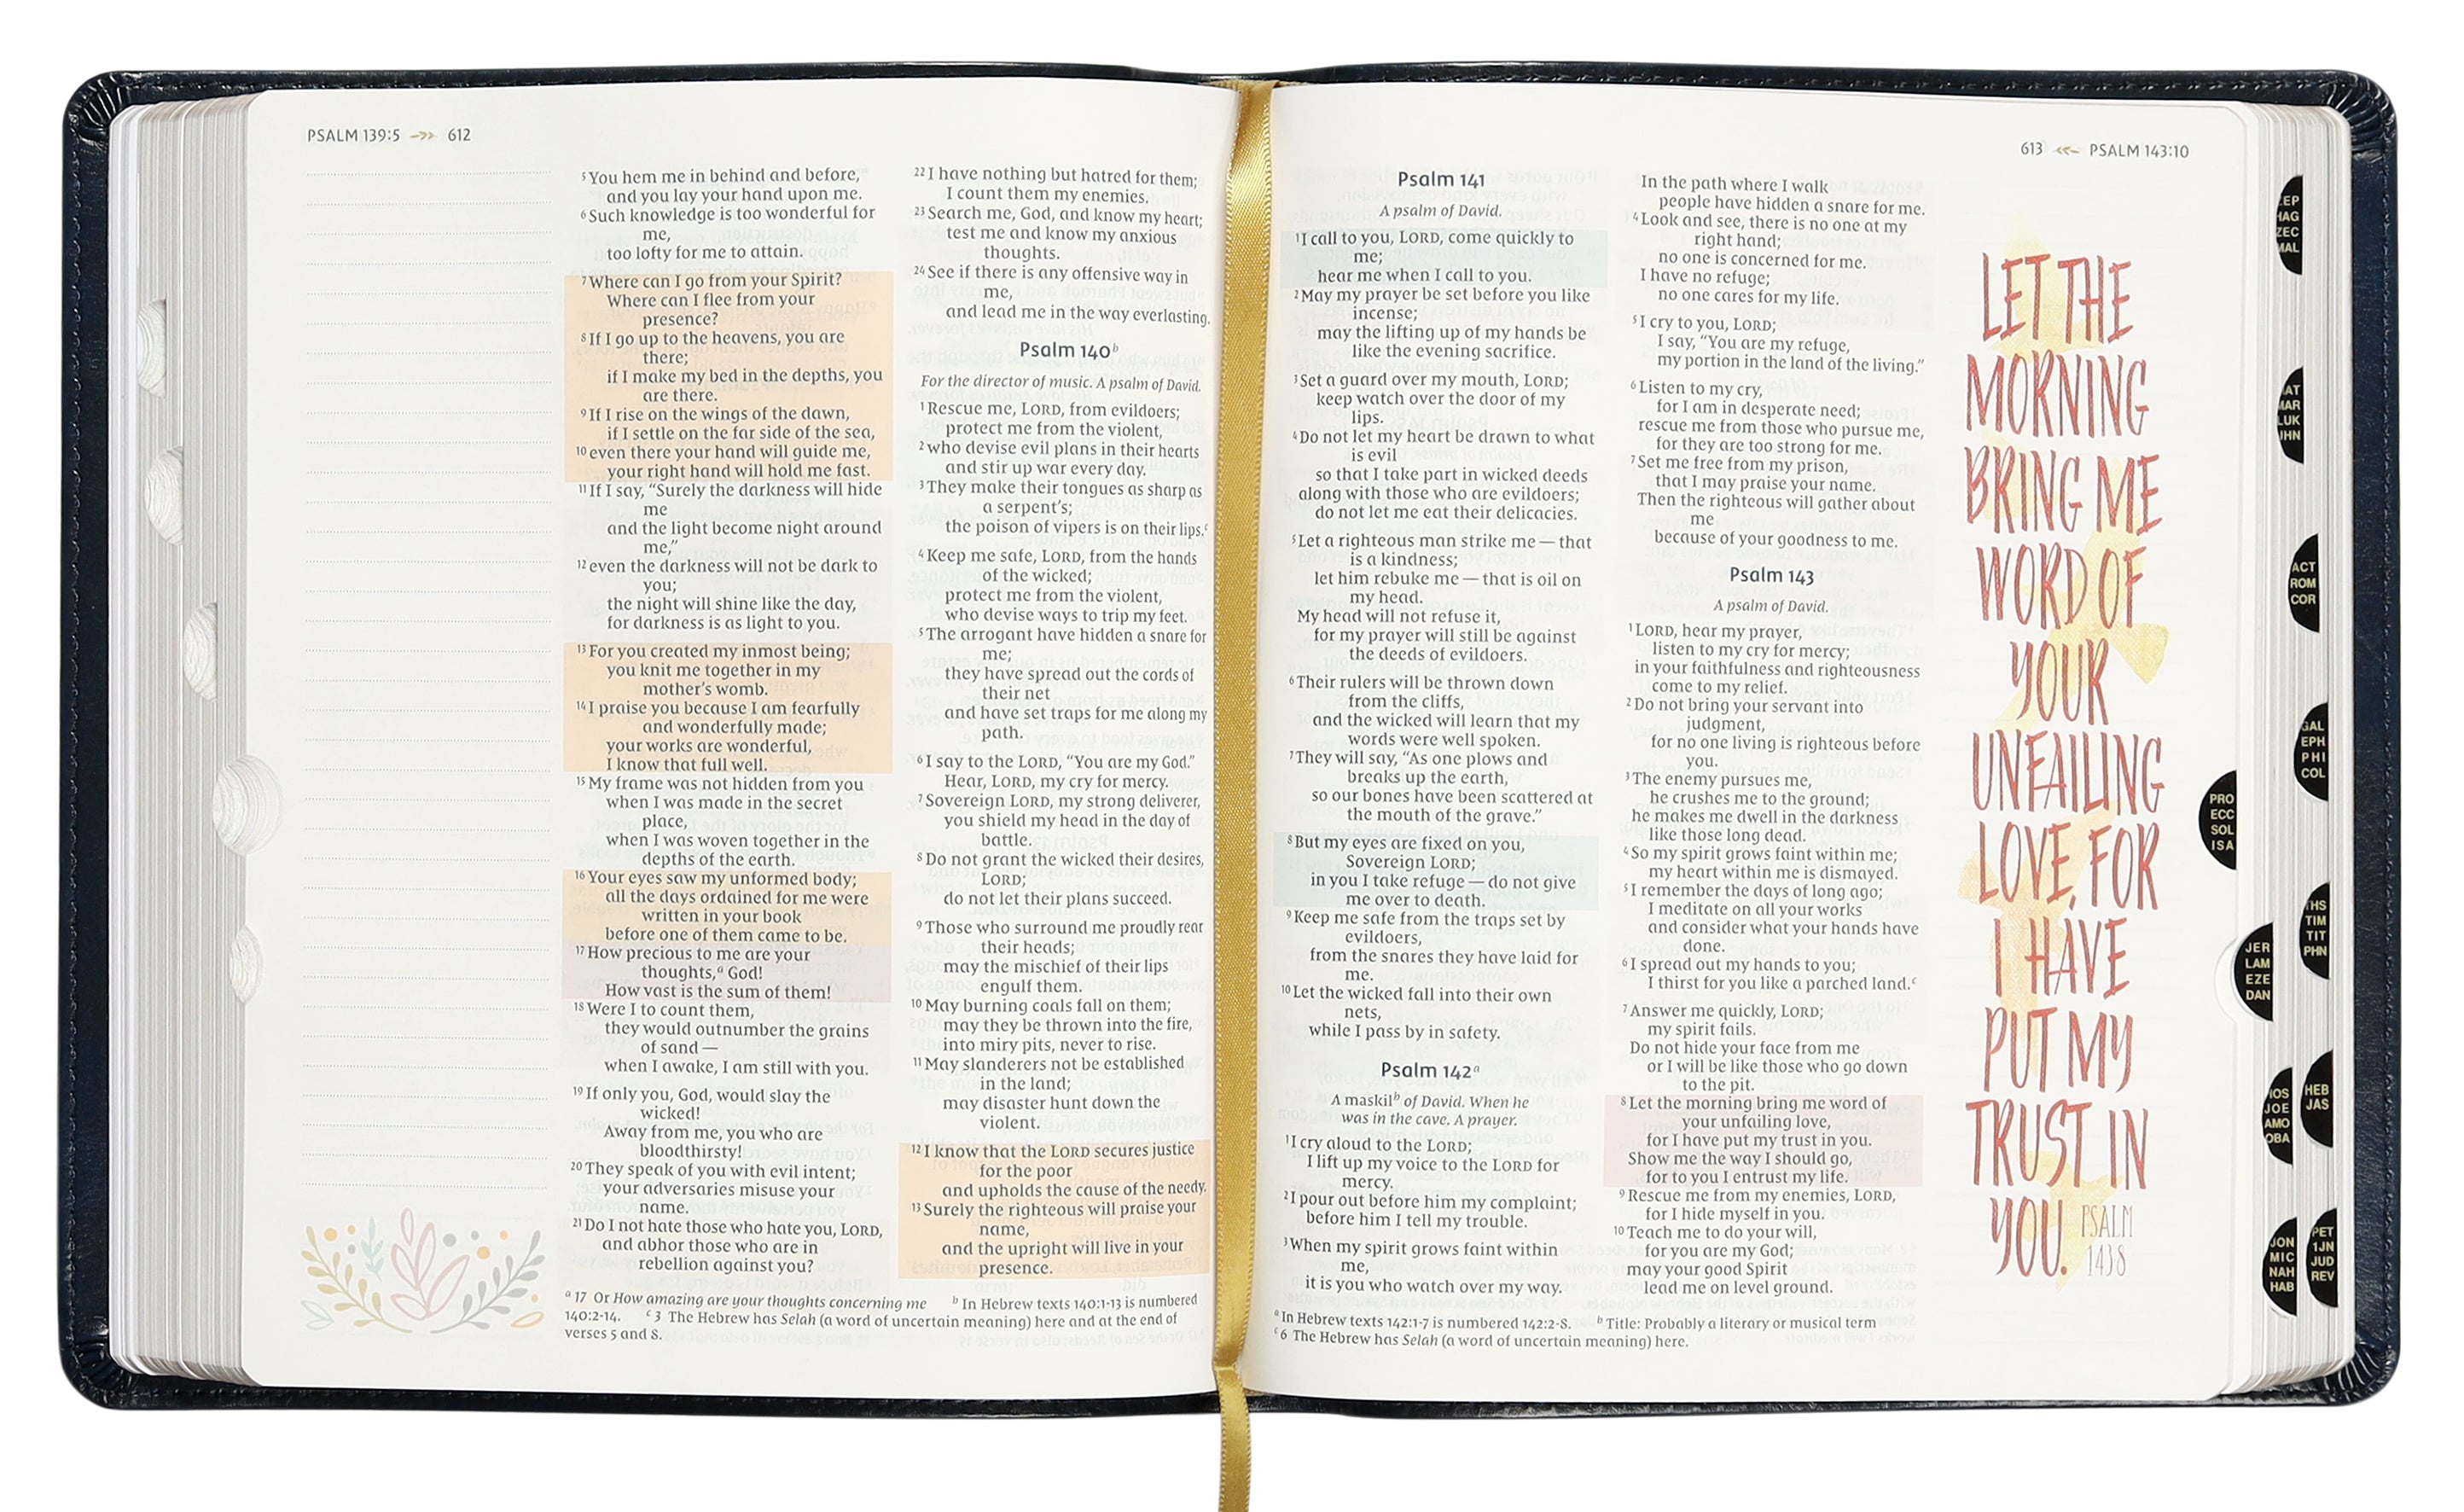 PSALM 139:5 612
5 You hem me in behind and before,
and you lay your hand upon me.
6 Such knowledge is too wonderful for
me,
too lofty for me to attain.
7 Where can I go from your Spirit?
Where can I flee from your
presence?
8 If I go up to the heavens, you are
there;
if I make my bed in the depths, you
are there.
9 If I rise on the wings of the dawn,
if I settle on the far side of the sea,
10 even there your hand will guide me,
your right hand will hold me fast.
11 If I say, “Surely the darkness will hide
me
and the light become night around
me,”
12 even the darkness will not be dark to
you;
the night will shine like the day,
for darkness is as light to you.
13 For you created my inmost being;
you knit me together in my
mother’s womb.
14 I praise you because I am fearfully
and wonderfully made;
your works are wonderful,
I know that full well.
15 My frame was not hidden from you
when I was made in the secret
place,
when I was woven together in the
depths of the earth.
16 Your eyes saw my unformed body;
all the days ordained for me were
written in your book
before one of them came to be.
17 How precious to me are your
thoughts,a God!
How vast is the sum of them!
18 Were I to count them,
they would outnumber the grains
of sand —
when I awake, I am still with you.
19 If only you, God, would slay the
wicked!
Away from me, you who are
bloodthirsty!
20 They speak of you with evil intent;
your adversaries misuse your
name.
21 Do I not hate those who hate you, LORD,
and abhor those who are in
rebellion against you?
22 I have nothing but hatred for them;
I count them my enemies.
23 Search me, God, and know my heart;
test me and know my anxious
thoughts.
24 See if there is any offensive way in
me,
and lead me in the way everlasting.
Psalm 140b
For the director of music. A psalm of David.
1 Rescue me, LORD, from evildoers;
protect me from the violent,
2 who devise evil plans in their hearts
and stir up war every day.
3 They make their tongues as sharp as
a serpent’s;
the poison of vipers is on their lips.c
4 Keep me safe, LORD, from the hands
of the wicked;
protect me from the violent,
who devise ways to trip my feet.
5 The arrogant have hidden a snare for
me;
they have spread out the cords of
their net
and have set traps for me along my
path.
6 I say to the LORD, “You are my God.”
Hear, LORD, my cry for mercy.
7 Sovereign LORD, my strong deliverer,
you shield my head in the day of
battle.
8 Do not grant the wicked their desires,
LORD;
do not let their plans succeed.
9 Those who surround me proudly rear
their heads;
may the mischief of their lips
engulf them.
10 May burning coals fall on them;
may they be thrown into the fire,
into miry pits, never to rise.
11 May slanderers not be established
in the land;
may disaster hunt down the
violent.
12 I know that the LORD secures justice
for the poor
and upholds the cause of the needy.
13 Surely the righteous will praise your
name,
and the upright will live in your
presence.
a 17 Or How amazing are your thoughts concerning me b In Hebrew texts 140:1-13 is numbered
140:2-14. c 3 The Hebrew has Selah (a word of uncertain meaning) here and at the end of
verses 5 and 8.
613 PSALM 143:10
Psalm 141
A psalm of David.
1 I call to you, LORD, come quickly to
me;
hear me when I call to you.
2 May my prayer be set before you like
incense;
may the lifting up of my hands be
like the evening sacrifice.
3 Set a guard over my mouth, LORD;
keep watch over the door of my
lips.
4 Do not let my heart be drawn to what
is evil
so that I take part in wicked deeds
along with those who are evildoers;
do not let me eat their delicacies.
5 Let a righteous man strike me — that
is a kindness;
let him rebuke me — that is oil on
my head.
My head will not refuse it,
for my prayer will still be against
the deeds of evildoers.
6 Their rulers will be thrown down
from the cliffs,
and the wicked will learn that my
words were well spoken.
7 They will say, “As one plows and
breaks up the earth,
so our bones have been scattered at
the mouth of the grave.”
8 But my eyes are fixed on you,
Sovereign LORD;
in you I take refuge — do not give
me over to death.
9 Keep me safe from the traps set by
evildoers,
from the snares they have laid for
me.
10 Let the wicked fall into their own
nets,
while I pass by in safety.
Psalm 142a
A maskilb of David. When he
was in the cave. A prayer.
1 I cry aloud to the LORD;
I lift up my voice to the LORD for
mercy.
2 I pour out before him my complaint;
before him I tell my trouble.
3 When my spirit grows faint within
me,
it is you who watch over my way.
In the path where I walk
people have hidden a snare for me.
4 Look and see, there is no one at my
right hand;
no one is concerned for me.
I have no refuge;
no one cares for my life.
5 I cry to you, LORD;
I say, “You are my refuge,
my portion in the land of the living.”
6 Listen to my cry,
for I am in desperate need;
rescue me from those who pursue me,
for they are too strong for me.
7 Set me free from my prison,
that I may praise your name.
Then the righteous will gather about
me
because of your goodness to me.
Psalm 143
A psalm of David.
1 LORD, hear my prayer,
listen to my cry for mercy;
in your faithfulness and righteousness
come to my relief.
2 Do not bring your servant into
judgment,
for no one living is righteous before
you.
3 The enemy pursues me,
he crushes me to the ground;
he makes me dwell in the darkness
like those long dead.
4 So my spirit grows faint within me;
my heart within me is dismayed.
5 I remember the days of long ago;
I meditate on all your works
and consider what your hands have
done.
6 I spread out my hands to you;
I thirst for you like a parched land.c
7 Answer me quickly, LORD;
my spirit fails.
Do not hide your face from me
or I will be like those who go down
to the pit.
8 Let the morning bring me word of
your unfailing love,
for I have put my trust in you.
Show me the way I should go,
for to you I entrust my life.
9 Rescue me from my enemies, LORD,
for I hide myself in you.
10 Teach me to do your will,
for you are my God;
may your good Spirit
lead me on level ground.
a In Hebrew texts 142:1-7 is numbered 142:2-8. b Title: Probably a literary or musical term
c 6 The Hebrew has Selah (a word of uncertain meaning) here.
LET THE
MORNING
BRING ME
WORD OF
YOUR
UNFAILING
LOVE, FOR
I HAVE
PUT MY
TRUST IN
YOU. PSALM
143:8
EP
HAG
ZEC
MAL
AT
MAR
LUK
JHN
ACT
ROM
COR
GAL
EPH
PHI
COL
PRO
ECC
SOL
ISA
THS
TIM
TIT
PHN
JER
LAM
EZE
DAN
HEB
JAS
HOS
JOE
AMO
OBA
JON
MIC
NAH
HAB
PET
1JN
JUD
REV